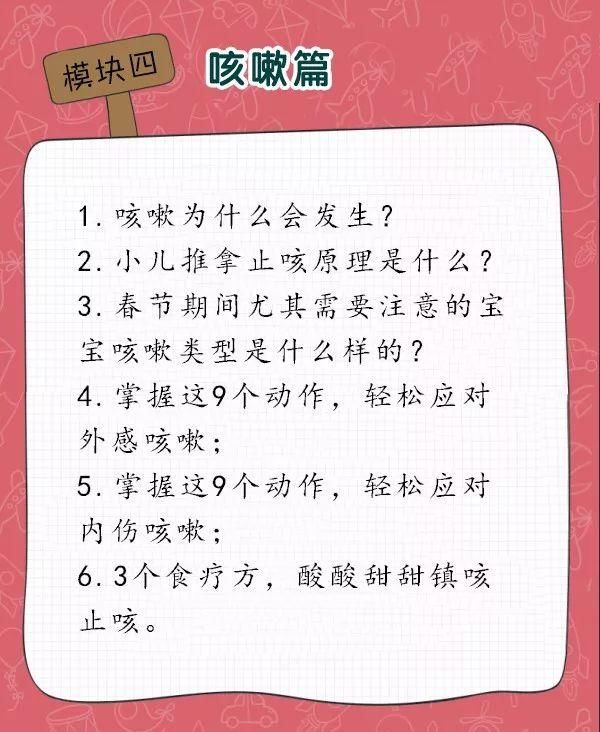 模块四
咳嗽篇
1.咳嗽为什么会发生？
2.小儿推拿止咳原理是什么？
3.春节期间尤其需要注意的宝
宝咳嗽类型是什么样的？
4.掌握这9个动作，轻松应对
外感咳嗽；
5.掌握这9个动作，轻松应对
内伤咳嗽；
6.3个食疗方，酸酸甜甜镇咳
止咳。